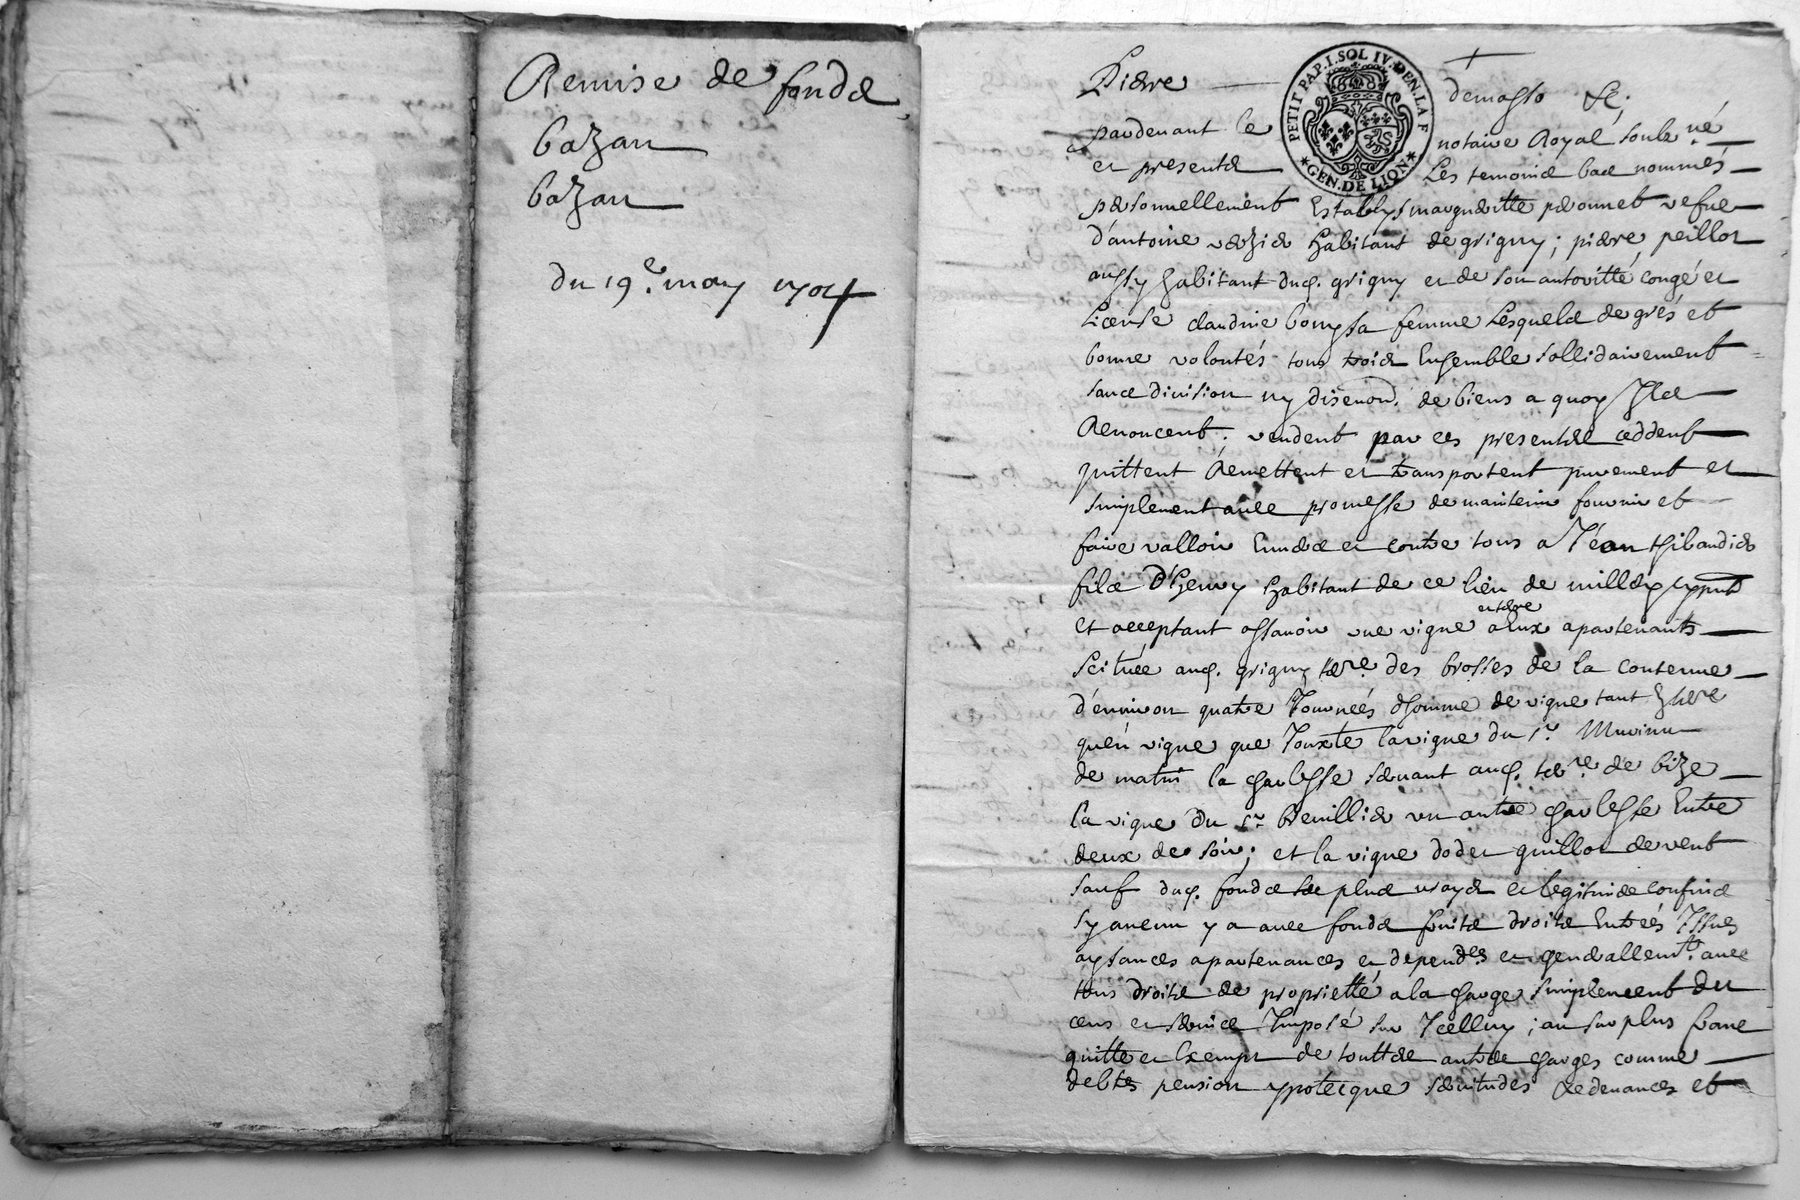 Remise de fonds
bazan
bazan
du 19.e may 1704
PETIT PAP. I. SOL IV. DEN. LA F
* GEN. DE LION *
Pierre demasso
pardevant le notaire Royal soubs.né
et presents Les temoins bas nommés
personnellement Establys margueritte peronnet vefve
d'antoine verzier habitant de grigny; pierre peillon
aussy habitant dud. grigny et de son autoritté congé et
License claudine sa femme Lesquels de grés et
bonne volontés tous trois Ensemble sollidairement
sans division ny discution de biens a quoy Ils
Renoncent. vendent par ces presentes ceddent
quittent Remettent et transportent purement et
simplement avec promesse de maintenir fournir et
faire valloir Envers et contre tous a Jean thibaudier
fils D'henry habitant de ce lieu de millery
et acceptant assavoir une vigne et terre a Eux apartenants
Scituée aud. grigny terr.e des brosses de la contenue
d'environ quatre Journeés d'homme de vigne tant
qu'en vigne que Jouxte la vigne du s.r
de matin la servant aud. terr.e de bize
la vigne du s.r un autre Entre
deux de soir; et la vigne guillot de vent
sauf dud. fonds ses plus vrays et legitimes confins
sy aucun y a avec fonds fruits droits Entreés Issues
aysances apartenances et depend.es et generallem.t avec
tous droits de proprietté a la charge simplement du
cens et service Imposé sur Icelluy; au surplus franc
quitte et Exempt de touttes autres charges comme
debtes pension ypotecque servitudes Redevances et